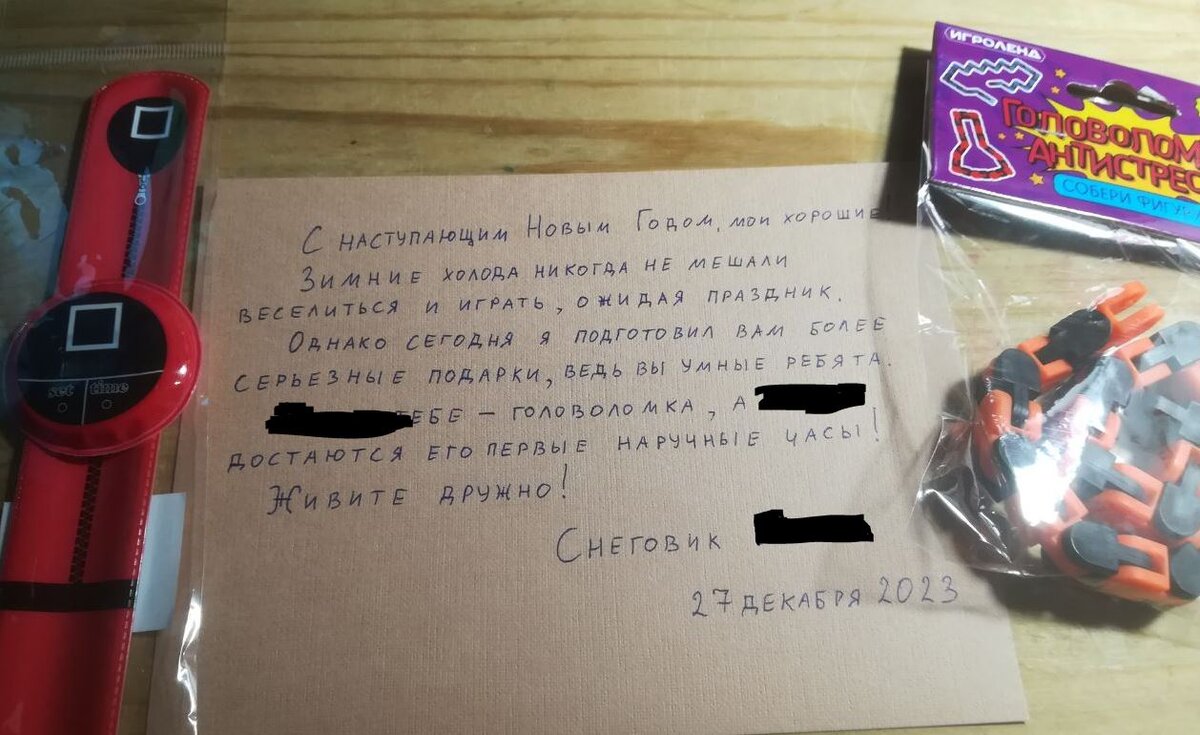 С НАСТУПАЮЩИМ НОВЫМ ГОДОМ, МОИ ХОРОШИЕ!
ЗИМНИЕ ХОЛОДА НИКОГДА НЕ МЕШАЛИ
ВЕСЕЛИТЬСЯ И ИГРАТЬ, ОЖИДАЯ ПРАЗДНИК.
ОДНАКО СЕГОДНЯ Я ПОДГОТОВИЛ ВАМ БОЛЕЕ
СЕРЬЕЗНЫЕ ПОДАРКИ, ВЕДЬ ВЫ УМНЫЕ РЕБЯТА.
ЕБЕ – ГОЛОВОЛОМКА, А
ДОСТАЮТСЯ ЕГО ПЕРВЫЕ НАРУЧНЫЕ ЧАСЫ!
ЖИВИТЕ ДРУЖНО!
СНЕГОВИК
27 ДЕКАБРЯ 2023
set time
ИГРОЛЕНД
ГОЛОВОЛОМ
АНТИСТРЕС
СОБЕРИ ФИГУР